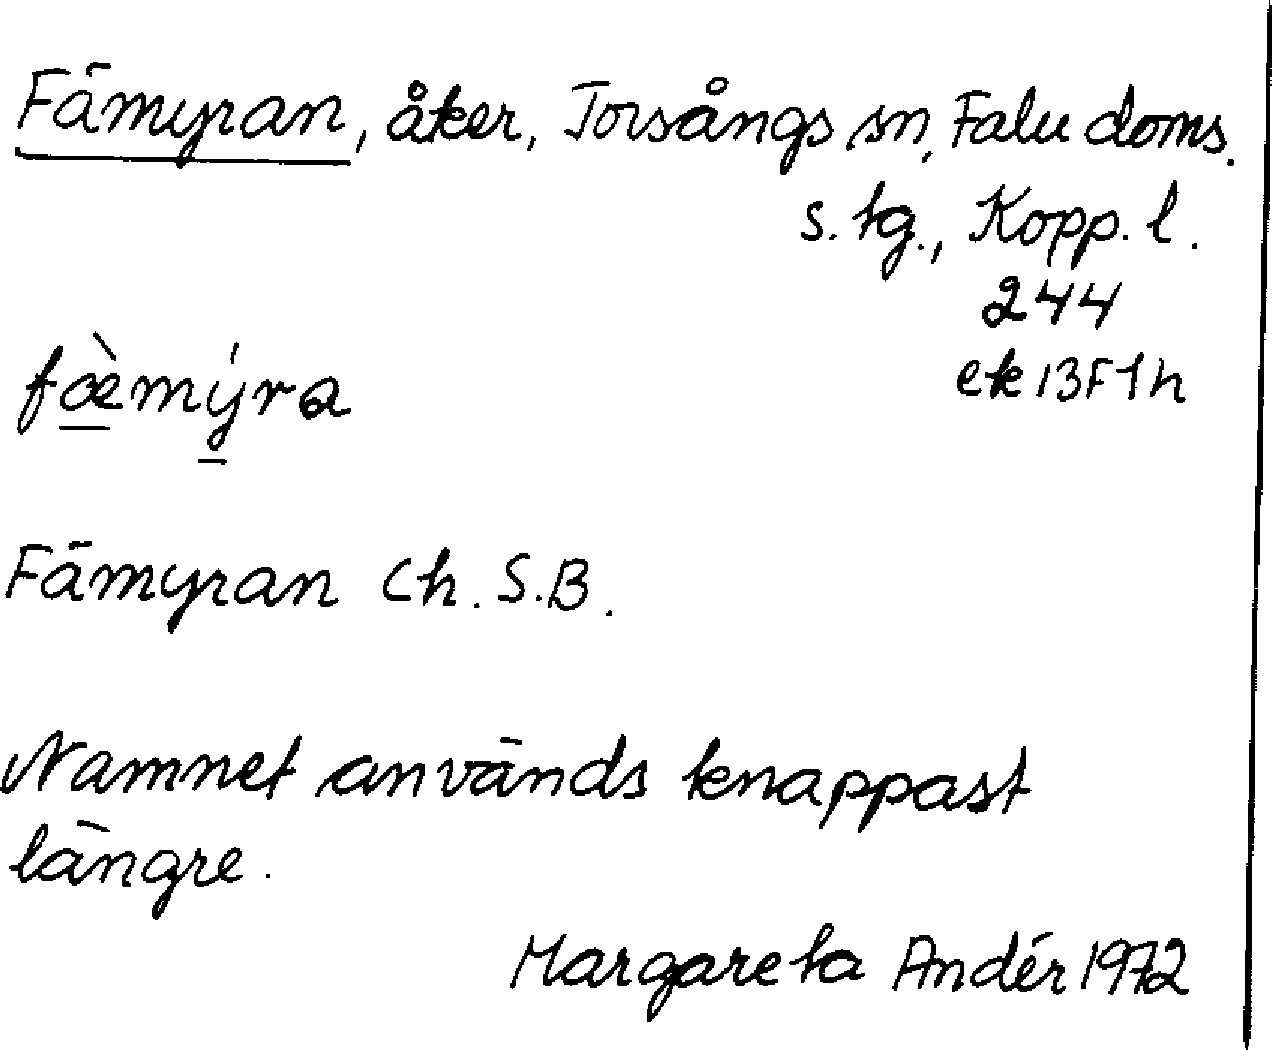 Fämyran, åker, Torsångs sn, Falu doms.
s. tg., Kopp. l.
244
ek 13F1h
fæ̀mýra
Fämyran Ch. S.B.
Namnet används knappast
längre.
Margareta Andér 1972